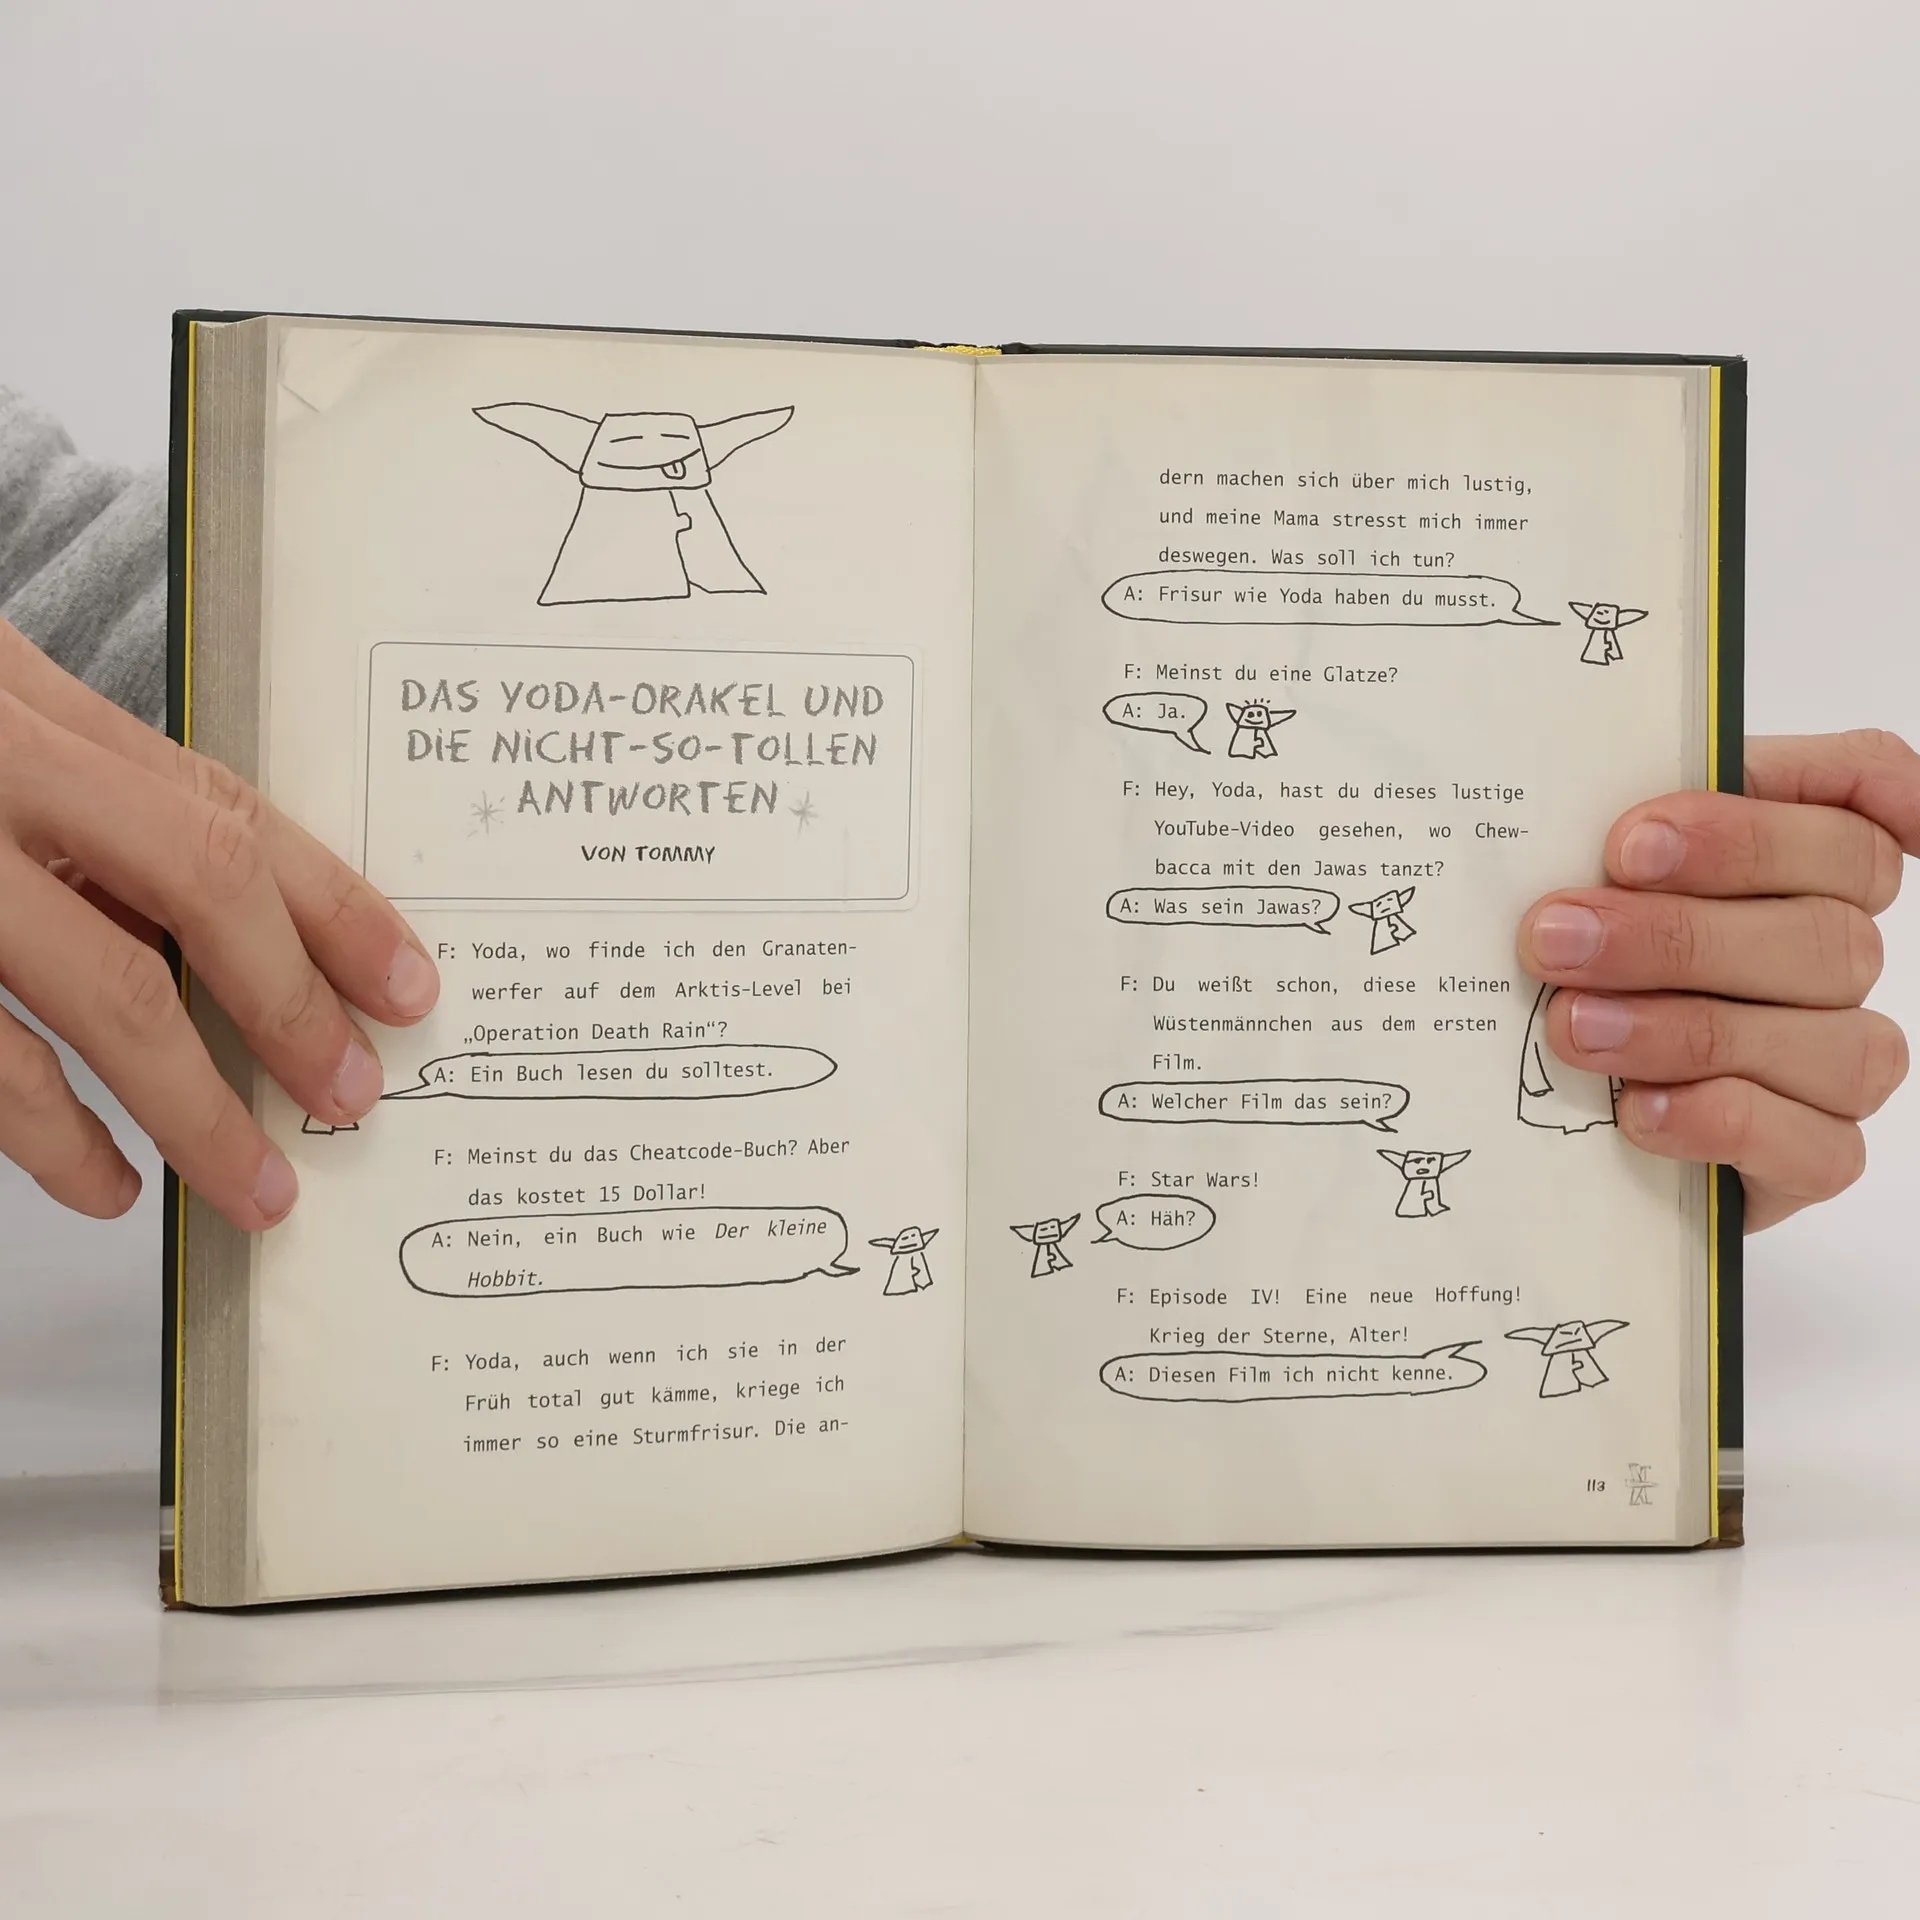 DAS YODA-ORAKEL UND
DIE NICHT-SO-TOLLEN
ANTWORTEN
VON TOMMY
F: Yoda, wo finde ich den Granaten-
werfer auf dem Arktis-Level bei
„Operation Death Rain“?
A: Ein Buch lesen du solltest.
F: Meinst du das Cheatcode-Buch? Aber
das kostet 15 Dollar!
A: Nein, ein Buch wie Der kleine
Hobbit.
F: Yoda, auch wenn ich sie in der
Früh total gut kämme, kriege ich
immer so eine Sturmfrisur. Die an-
dern machen sich über mich lustig,
und meine Mama stresst mich immer
deswegen. Was soll ich tun?
A: Frisur wie Yoda haben du musst.
F: Meinst du eine Glatze?
A: Ja.
F: Hey, Yoda, hast du dieses lustige
YouTube-Video gesehen, wo Chew-
bacca mit den Jawas tanzt?
A: Was sein Jawas?
F: Du weißt schon, diese kleinen
Wüstenmännchen aus dem ersten
Film.
A: Welcher Film das sein?
F: Star Wars!
A: Häh?
F: Episode IV! Eine neue Hoffung!
Krieg der Sterne, Alter!
A: Diesen Film ich nicht kenne.
113